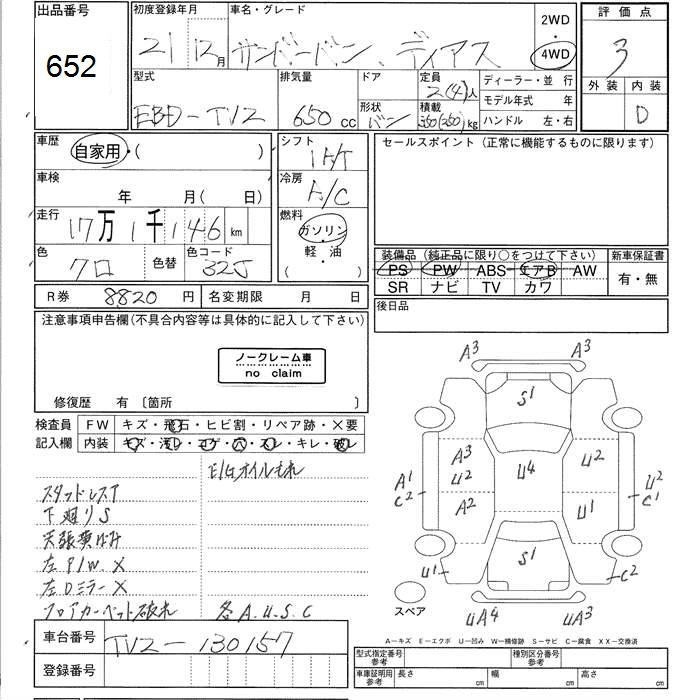 出品番号 初度登録年月 車名・グレード 2WD 評価点
652 21 12月 サンバーバン、ディアス 4WD 3
型式 排気量 ドア 定員 2(4)人 ディーラー・並 行 外装 内装
EBD-TV2 650cc 形状 バン 積載 350(250)kg モデル年式 年 D
ハンドル 左・右
車歴 シフト セールスポイント(正常に機能するものに限ります)
自家用・( )
車検 冷房
年 月( 日) A/C
走行 燃料
17万1千146km ガソリン・
色 色替 色コード 軽・油
クロ 32J ( )
装備品(純正品に限り○をつけて下さい) 新車保証書
PS PW ABS エアB AW 有・無
SR ナビ TV カワ
R券 8820円 名変期限 月 日 後日品
注意事項申告欄(不具合内容等は具体的に記入して下さい)
ノークレーム車
no claim
修復歴 有 〔箇所 〕
検査員 FW キズ・飛石・ヒビ割・リペア跡・×要
記入欄 内装 キズ・汚レ・コゲ・穴・スレ・キレ・破レ
E/Gオイルもれ
スタッドレスT
下廻りS
左P/W X
左Dミラー X
フロアカーペット破れ 各A.U.S.C
A3 A3
S1
A3 U4 U2
A1 U2 U2
C2 A2 U1 C1
S1
U1 C2
スペア UA4 UA3
A-キズ E-エクボ U-凹み W-補修跡 S-サビ C-腐食 XX-交換済
車台番号 TV2-130157
登録番号
型式指定番号 参考 種別区分番号 参考
車庫証明用 参考 長さ cm 幅 cm 高さ cm